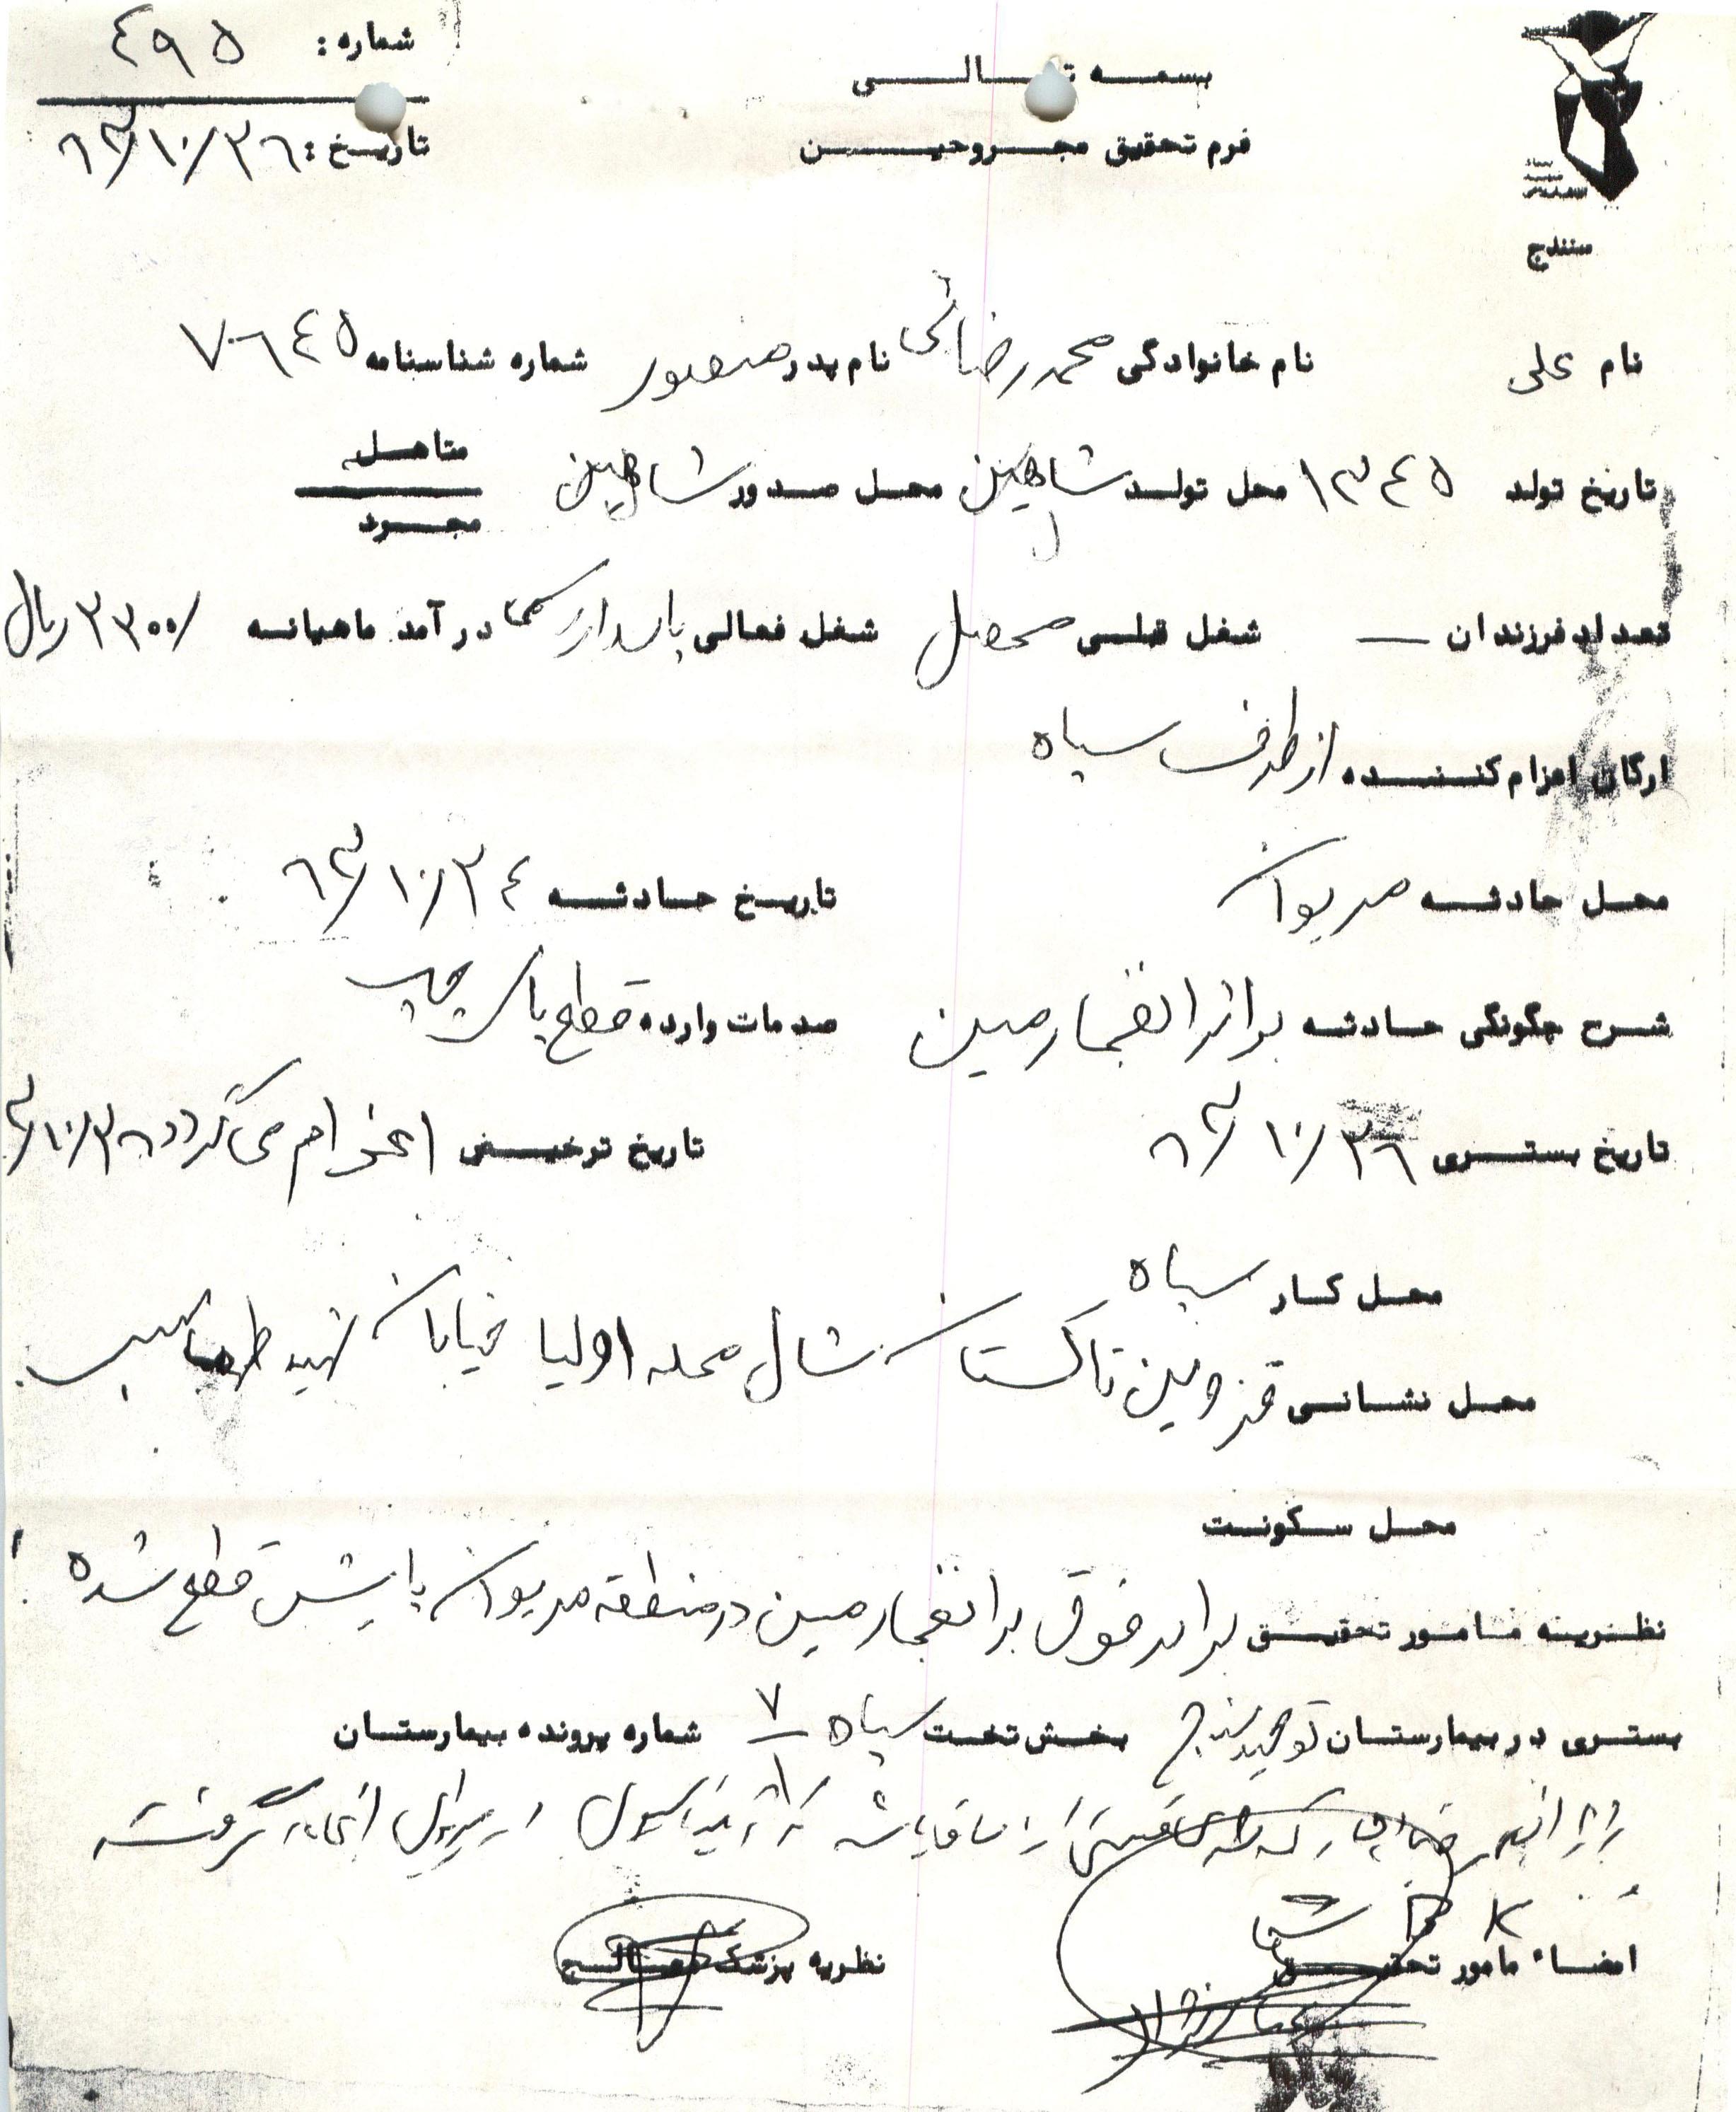 شماره : ٤٩٥
بسمه تعالی
تاریخ : ٦٣/١٠/٢٦
فرم تحقیق مجروحین
سنندج
نام علی نام خانوادگی محمد رضائی نام پدر منصور شماره شناسنامه ٧٠٦٤٥
تاریخ تولد ١٣٤٥ محل تولد شاهین محل صدور شاهین متاهل
مجرد
تعداد فرزندان — شغل قبلی محصل شغل فعالی پاسدار درآمد ماهیانه ٢٣٠٠٠/ ریال
ارگان اعزام کننده از طرف سپاه
محل حادثه مریوان تاریخ حادثه ٦٣/١٠/٢٤
شرح چگونگی حادثه بر اثر انفجار مین صدمات وارده قطع پای چپ
تاریخ بستری ٦٣/١٠/٢٦ تاریخ ترخیص اعزام می گردد ٦٣/١٠/٢٦
محل کار سپاه
محل نشانی قزوین تاکستان شال محله اولیا خیابان شهید
محل سکونت
نظریه مامور تحقیق برادر فوق بر انفجار مین در منطقه مریوان پایش قطع شده
بستری در بیمارستان توحید سنندج بخش تخت سپاه ٧/١ شماره پرونده بیمارستان
گرفته
امضاء مامور تحقیق نظریه پزشک معالج